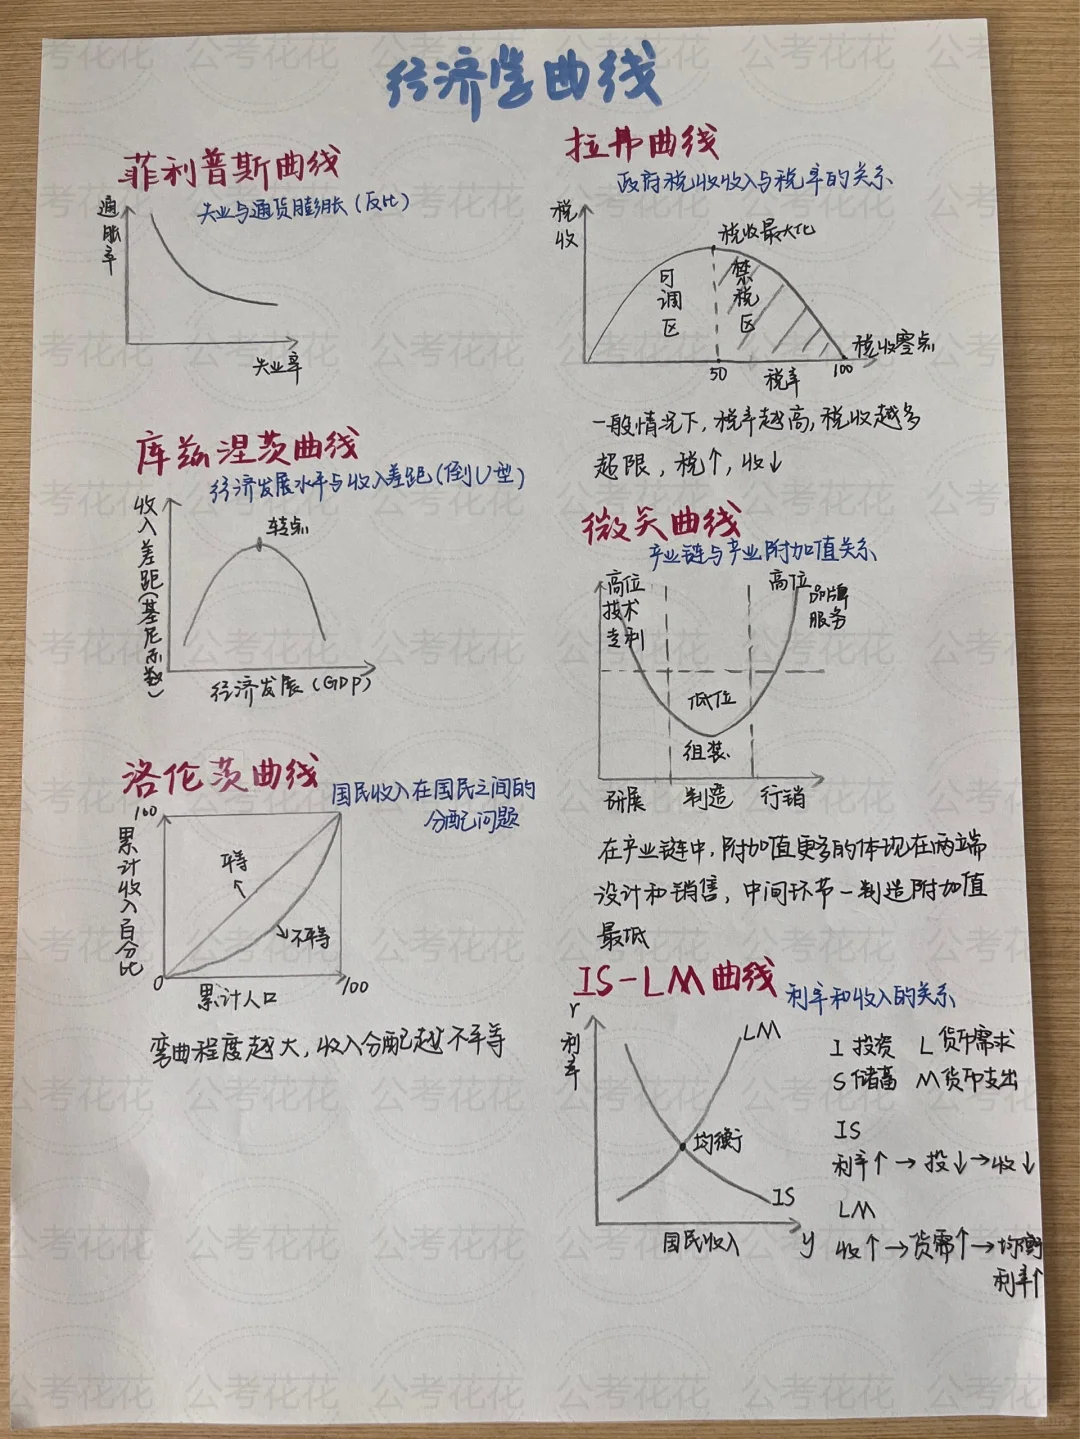 经济学曲线
菲利普斯曲线
失业与通货膨胀(反比)
通胀率
失业率
库兹涅茨曲线
经济发展水平与收入差距(倒U型)
收入差距(基尼系数)
转点
经济发展(GDP)
洛伦茨曲线
国民收入在国民之间的
分配问题
100
累计收入百分比
平等
不平等
0
累计人口
100
弯曲程度越大,收入分配越不平等
拉弗曲线
政府税收收入与税率的关系
税收
税收最大化
可调区
禁税区
税收零点
50
税率
100
一般情况下,税率越高,税收越多
超限,税↑,收↓
微笑曲线
产业链与产业附加值关系
高位
技术
专利
高位
品牌
服务
低位
组装
研展
制造
行销
在产业链中,附加值更多的体现在两端
设计和销售,中间环节一制造附加值
最低
IS-LM曲线
利率和收入的关系
r
利率
LM
均衡
IS
国民收入
y
I 投资 L 货币需求
S 储蓄 M 货币支出
IS
利率↑→投↓→收↓
LM
收↑→货需↑→均衡
利率↑
公考花花